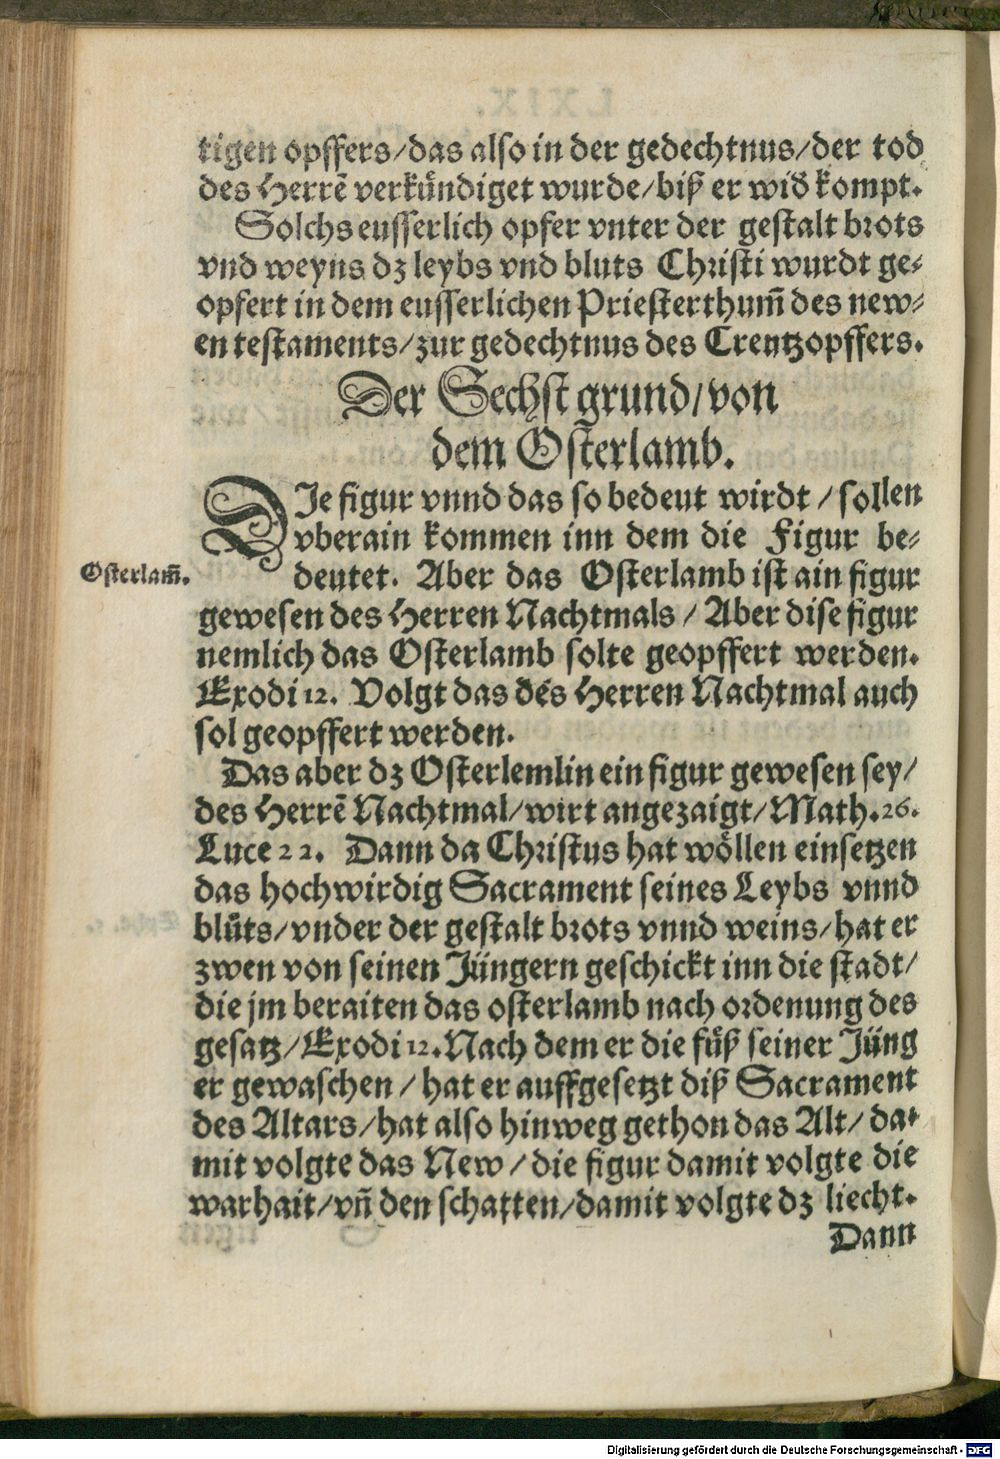 tigen opffers/das also in der gedechtnus/der tod
des Herrẽ verkündiget wurde/biß er wið kompt.
Solchs eusserlich opfer vnter der gestalt brots
vnd weyns dz leybs vnd bluts Christi wurdt ge-
opfert in dem eusserlichen Priesterthum̃ des new-
en testaments/zur gedechtnus des Creutzopffers.
Der Sechst grund/von
dem Osterlamb.
DIe figur vnnd das so bedeut wirdt/sollen
vberain kommen inn dem die Figur be-
Osterlam̃.
deutet. Aber das Osterlamb ist ain figur
gewesen des Herren Nachtmals/Aber dise figur
nemlich das Osterlamb solte geopffert werden.
Exodi 12. Volgt das des Herren Nachtmal auch
sol geopffert werden.
Das aber dz Osterlemlin ein figur gewesen sey/
des Herrẽ Nachtmal/wirt angezaigt/Math. 26.
Luce 22. Dann da Christus hat wöllen einsetzen
das hochwirdig Sacrament seines Leybs vnnd
blůts/vnder der gestalt brots vnnd weins/hat er
zwen von seinen Jüngern geschickt inn die stadt/
die jm beraiten das osterlamb nach ordenung des
gesatz/Exodi 12. Nach dem er die fůß seiner Jüng
er gewaschen/hat er auffgesetzt diß Sacrament
des Altars/hat also hinweg gethon das Alt/da-
mit volgte das New/die figur damit volgte die
warhait/vñ den schatten/damit volgte dz liecht.
Dann
Digitalisierung gefördert durch die Deutsche Forschungsgemeinschaft - DFG